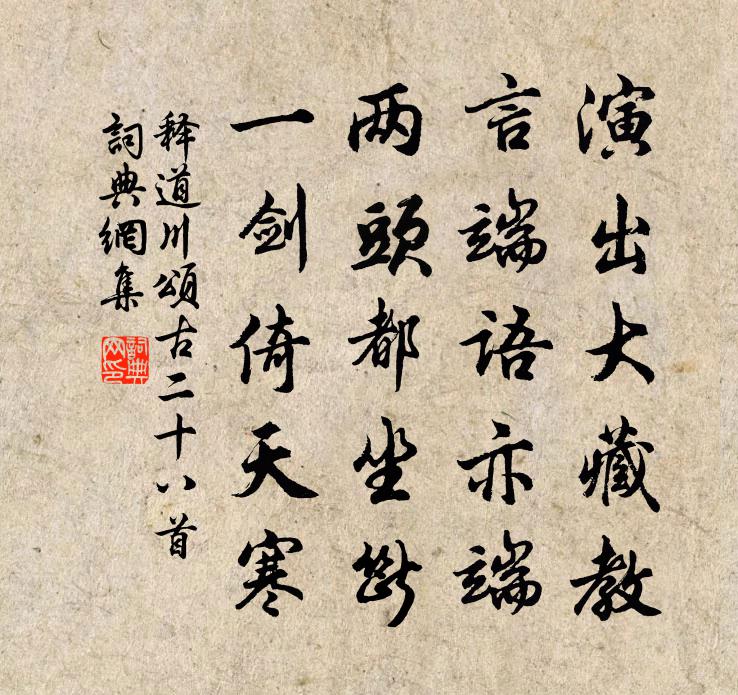 演出大藏教
言端語亦端
两頭都坐斷
一劍倚天寒
释道川頌古二十八首
詞典網集
詞典網印